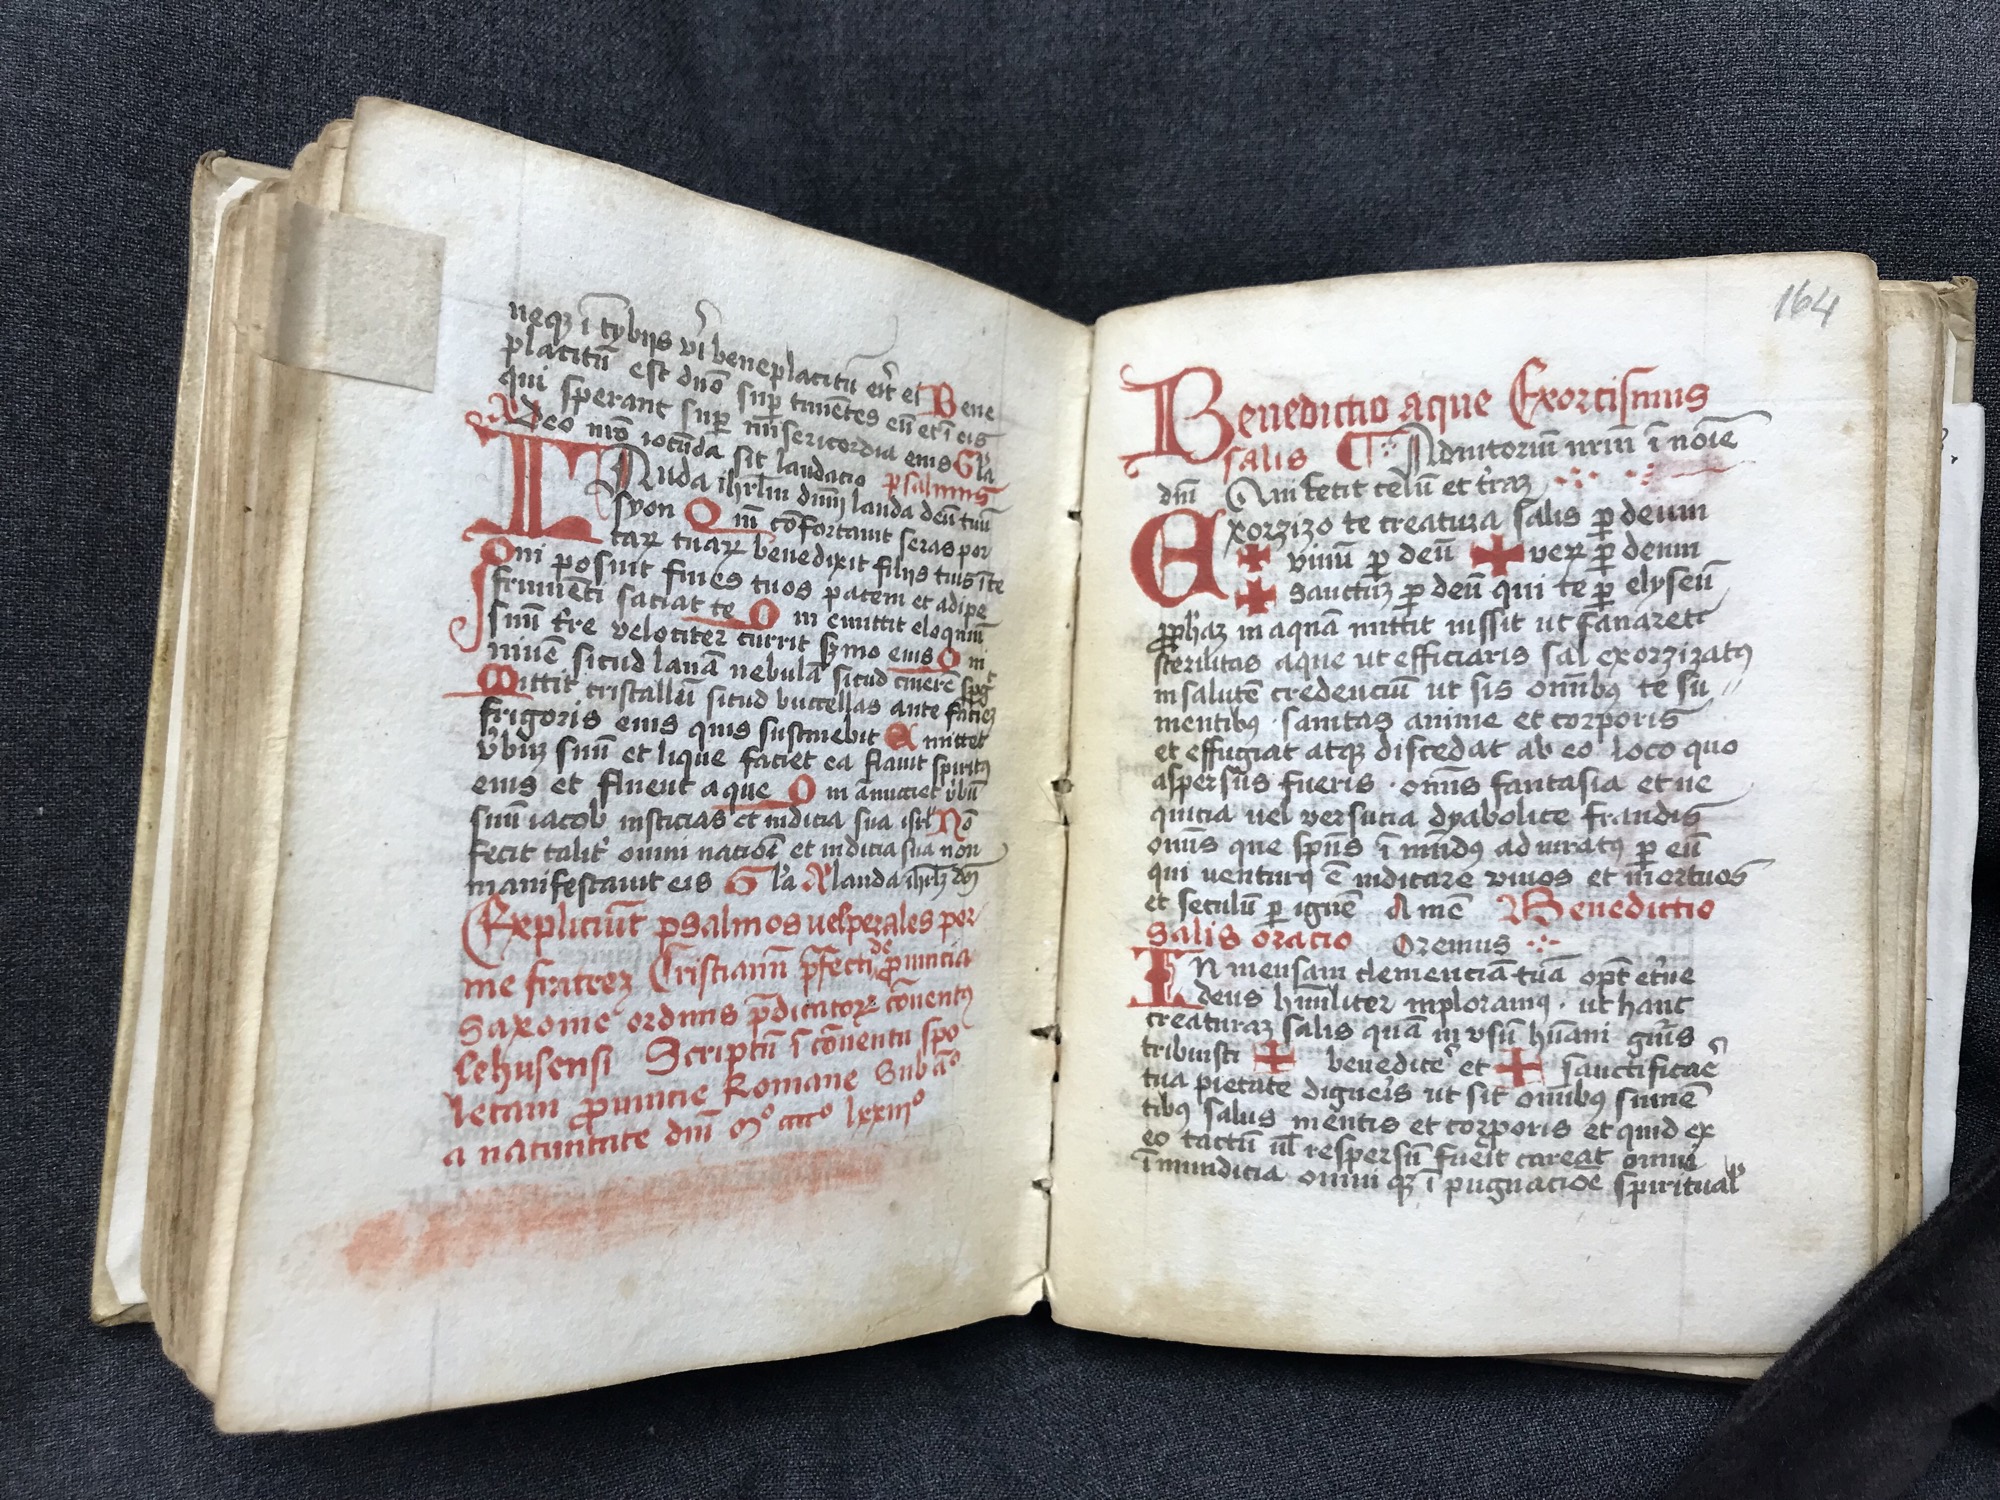 neqꝫ ī tybijs vͥi beneplacitū erͥt ei Bene
placitū est dn̄o sup̄ timētes eū et ī eis
qui sperant sup̄ mīsericordia eius Gl̄a
Deo nr̄o iocūda sit laudatio psalmus
LAuda ihrl̄m dn̄m lauda deū tuū
syon Qm̄ cōfortauit seras por
taꝝ tuaꝝ benedixit filijs tuis ī te
Qui posuit fines tuos pacem et adipe
frumēti saciat te Qui emittit eloquiū
suū t̄re velociter currit s̄mo eius Qui
niuē sicud lanā nebulā sicud cinerē spͣgͭ
Mittit cristallū sicud buccellas ante faciē
frigoris eius quis sustinebit Emittet
v̄bū suū et liquefaciet ea flauit spiritꝰ
eius et fluent aque Qui ānuciet v̄bū
suū iacob iusticias et iudicia sua isrl̄ Nō
fecit talit̄ omni nacōi et iudicia sua non
manifestauit eis Gl̄a A lauda
Expliciūt psalmos vesperales per
me fratrez Cristianū p̄fecti de ꝓuincia
Saxonie ordinis p̄dicatoꝝ cōuentꝰ
lehusensi Scriptū ī cōuentu spo
letani ꝓuincie Romane Sub āͦ
a natiuitate dn̄i Mͦ ccccͦ lxxiiiͦ
164
Benedictio aque Exorcismus
salis Adiutoriū nr̄m ī noīe
dn̄i Qui fecit celū et t̄raꝫ
Exorzizo te creatura salis ꝑ deum
✠ viuū ꝑ deū ✠ verꝝ ꝑ deum
✠ sanctūꝫ ꝑ deū qui te ꝑ elyseū
ꝓph̄aꝫ in aquā mittit iussit ut sanarett
sterilitas aque ut efficiaris sal exorzizatꝰ
in salutē credenciū ut sis omībꝰ te su
mentibꝰ sanitas anime et corporis
et effugiat atqꝫ discedat ab eo loco quo
aspersus fueris om̄s fantasia et ne
quicia uel versucia dyabolice fraudis
om̄s que sp̄us īmūdꝰ adiuratꝰ ꝑ eū
qui venturꝰ ē iudicare viuos et mortuos
et seculū ꝑ ignē Amē Benedictio
Salis oracio Oremus
INmensam clemenciā tuā opt̄ et̄ne
deus hūiliter inploramꝰ ut hanc
creaturaꝫ salis quā in vsū hūani gn̄is
tribuisti ✠ benedicēˀ et ✠ sanctificaˀe
tua pietate digneris ut sit omnibus sumē
tibꝰ salus mentis et corporis et quid ex
eo tactū ul̄ respersū fuerit careat omni
īmundicia omniqꝫ īpugnacōe spiritualˀ